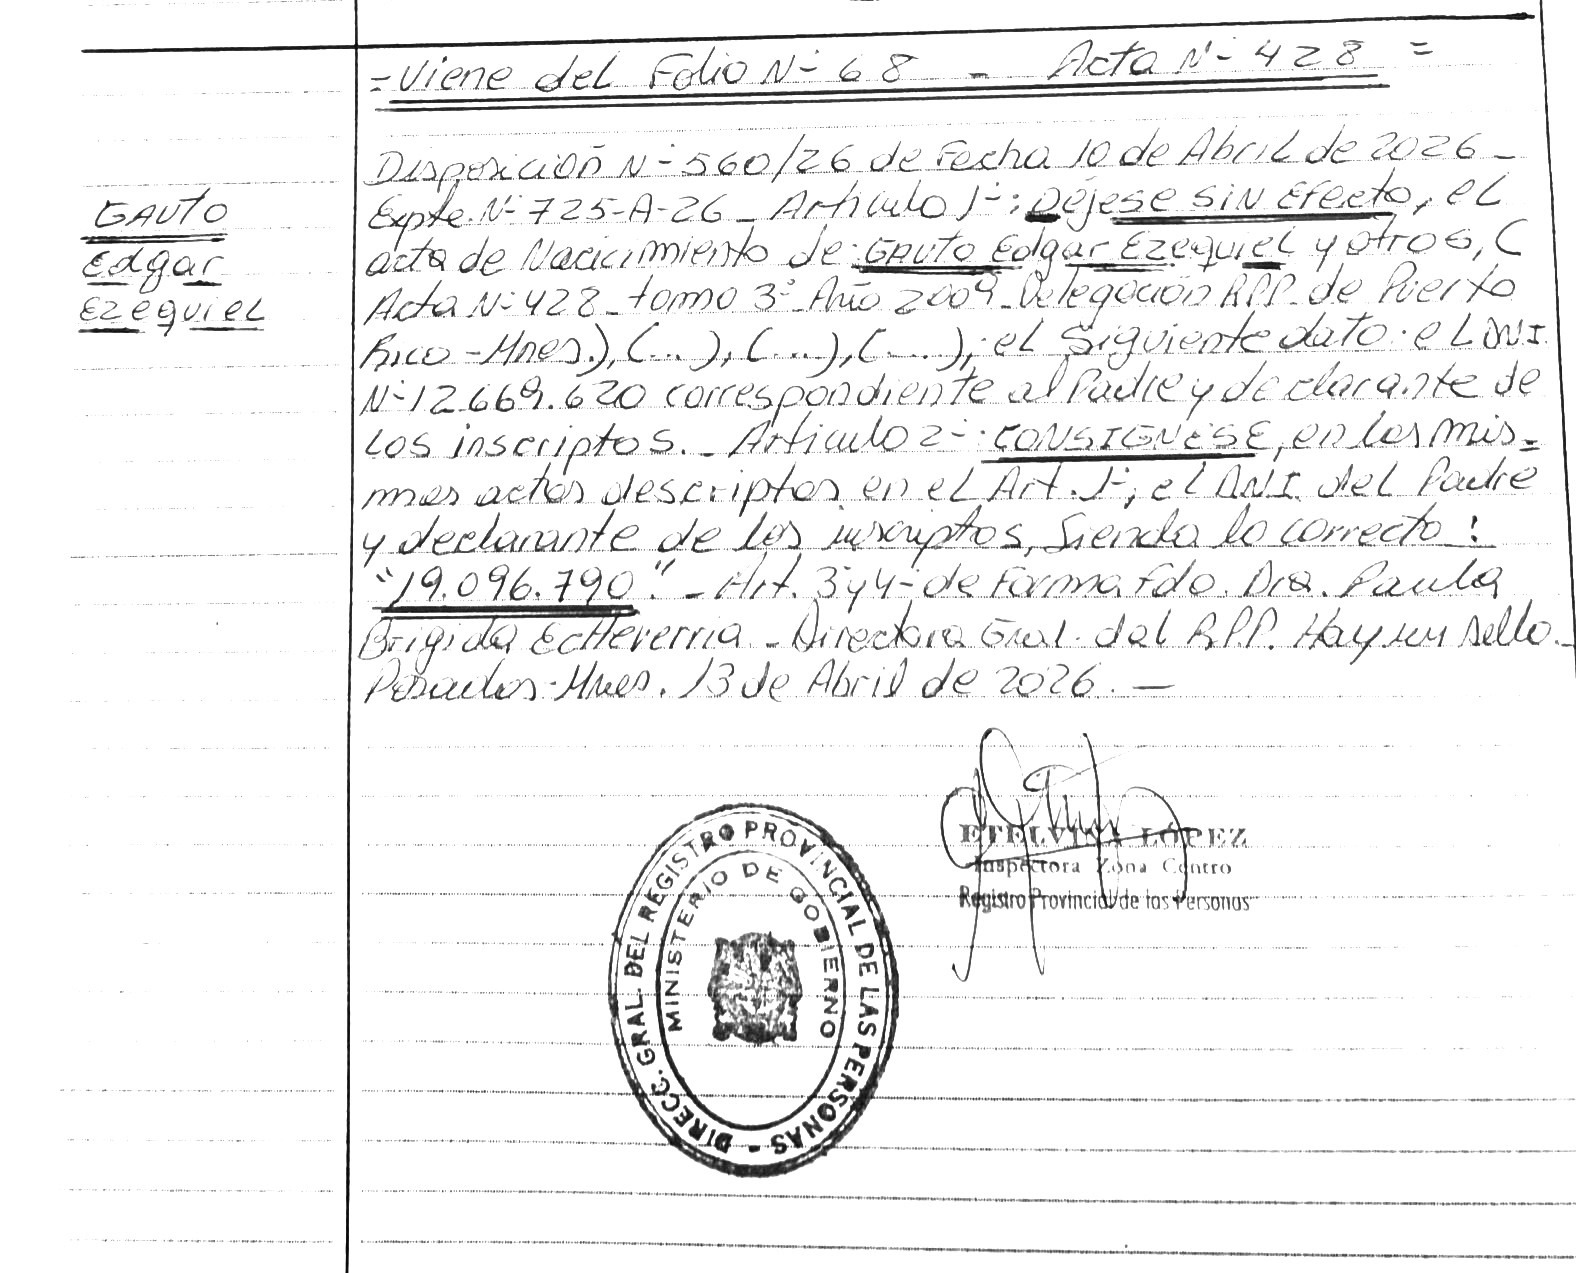 = Viene del Folio Nº 68 - Acta Nº 428 =
GAUTO
Edgar
EZEQUIEL
Disposición Nº 560/26 de Fecha 10 de Abril de 2026 -
Expte. Nº 725-A-26 - Artículo 1º: Déjese SIN EFECTO, el
acta de Nacimiento de: GAUTO Edgar EZEQUIEL y otros, (
Acta Nº 428 - tomo 3º Año 2009 - Delegación R.P.P. de Puerto
Rico - Mnes.), (...), (...), (....); el siguiente dato: el D.N.I.
Nº 12.669.620 correspondiente al Padre y declarante de
los inscriptos. - Artículo 2º: CONSIGNESE, en las mis=
mas actas descriptas en el Art. 1º, el D.N.I. del Padre
y declarante de los inscriptos, siendo lo correcto:
"19.096.790". - Art. 3º y 4º de Forma Fdo. Dra. Paula
Brigida Echeverria - Directora Gral. del R.P.P. Hay un sello. -
Posadas - Mnes. 13 de Abril de 2026. —
ETELVINA LÓPEZ
Inspectora Zona Centro
Registro Provincial de las Personas
DIRECC. GRAL. DEL REGISTRO PROVINCIAL DE LAS PERSONAS -
MINISTERIO DE GOBIERNO